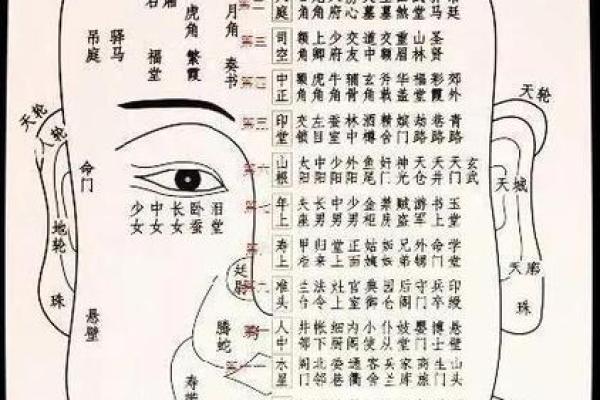 虎角
月角
吊庭
驿马
福堂
繁霞
奏书
天轮
人轮
命门
地轮
珠
悬壁
少女
中女
长女
卧蚕
泪堂
廷尉
腾蛇
天轮
天城
天廓
珠
第二 天庭 天府 房心
第三 司空 额角 上卿 少府 交友 道中 交额 重眉 山林 圣贤
第四 中正 额角 虎角 牛角 辅骨 玄角 斧戟 华盖 福堂 彩霞 郊外
印堂 交锁 左目 蚕室 林中 酒樽 精舍 嫔门 劫路 巷路 青路
第六 山根 太阳 中阳 少阳 外阳 鱼尾 奸门 神光 天仓 天井 天门 玄武
第七 年上 夫座 长男 中男 少男 金匮 禁房 贼盗 游军 书上 玉堂
寿上 甲匮 归来 堂上 正面 姑姨 姊妹 兄弟 外甥 命门 学堂
第九 准头 兰台 法令 灶上 宫室 典御 园仓 后阁 守门 兵卒 印绶
人中 井部 帐下 细厨 内阁 小使 仆从 妓堂 婴门 博士 悬壁
第十一 水星 阁门 北邻 委巷 通衢 客舍 兵兰 家库 商旅 生门 山头